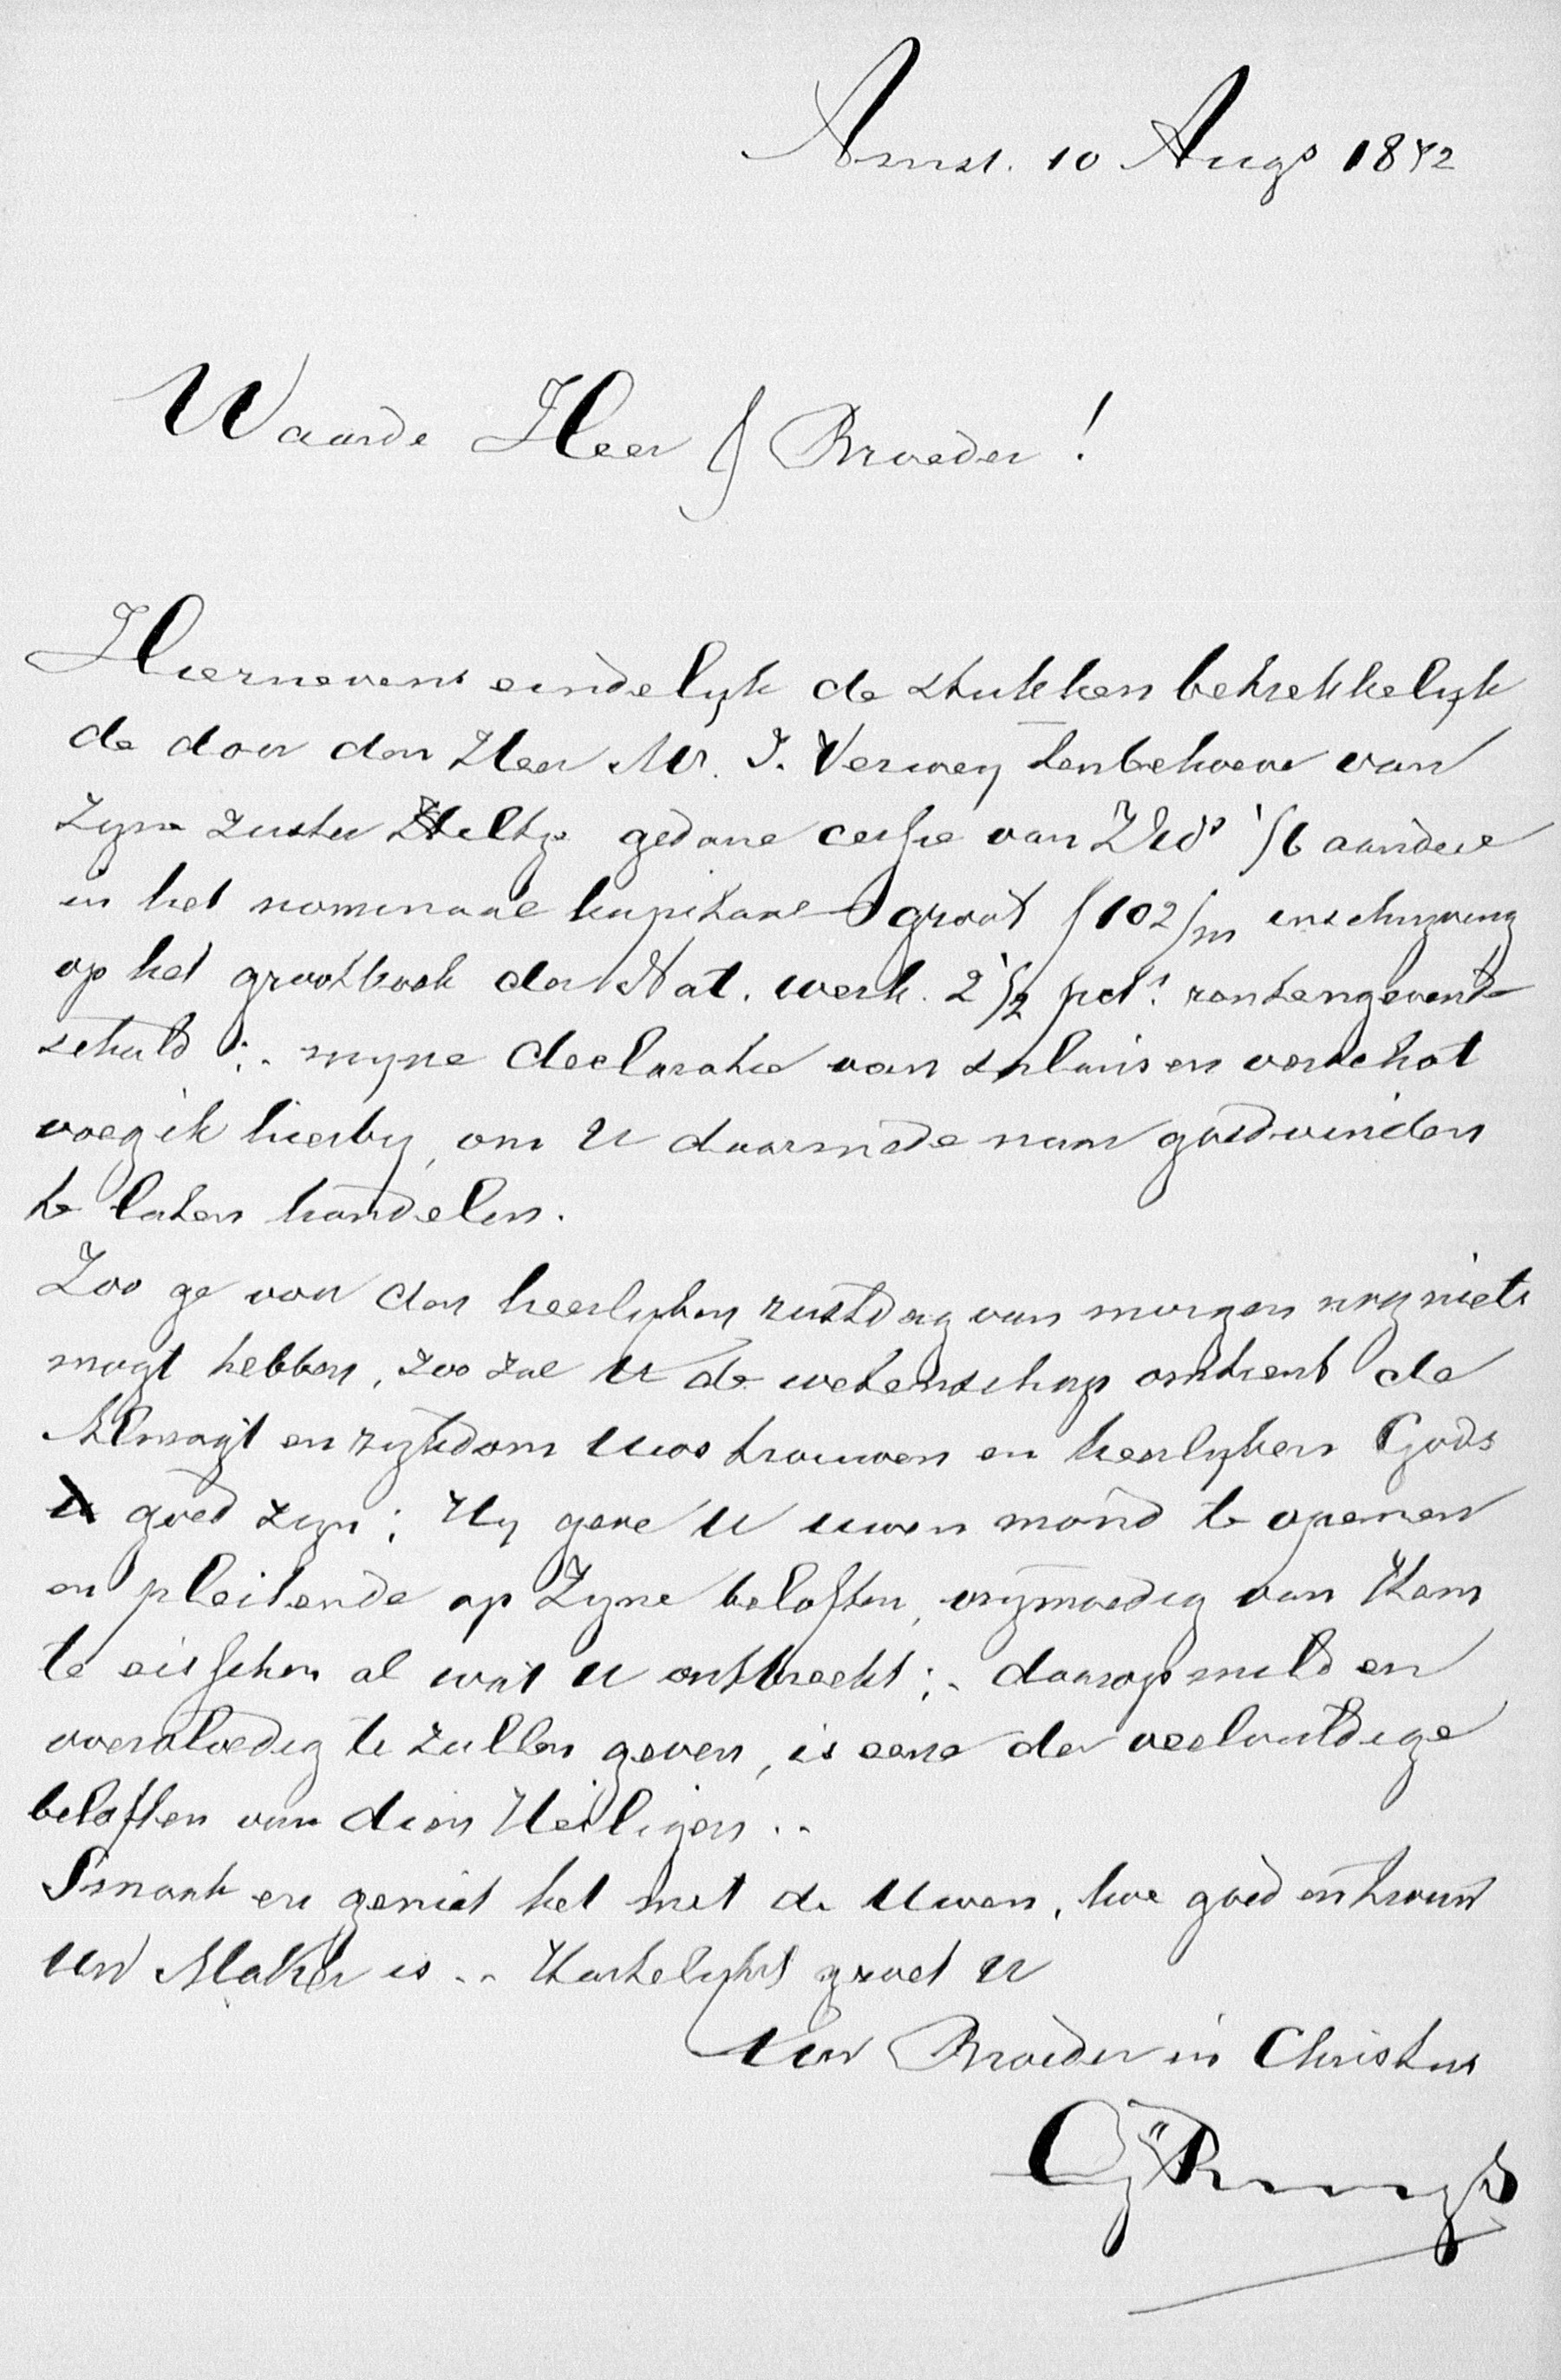 Amst. 10 Augs 1872
Waarde Heer & Broeder!
Hiernevens eindelyk de stukken betrekkelyk
de door den Heer Mr. J. Verwey tenbehoeve van
zyne zuster gedane cessie van 1/6 aandeel
in het nominaal kapitaal groot ƒ102/m inschryving
op het grootboek der Nat. werk. 2 1/2 pct. rentengevende
schuld :. myne declaratie van salaris en verschot
voeg ik hierby, om U daarmede naar goedvinden
te laten handelen.
Zoo ge voor den heerlyken rustdag van morgen nog niets
mogt hebben, zoo zal U de wetenschap omtrent de
Almagt en rykdom Uwos trouwen en heerlyken Gods
goed zyn; Hy geve U uwen mond te openen
en pleitende op Zyne beloften, vrymoedig van Hem
te eisschen al wat U ontbreekt; - daarop mild en
overvloedig te zullen geven, is eene der veelvuldige
beloften van dien Heiligen..
Smaak en geniet het met de Uwen, hoe goed en trouw
Uw Maker is.. Hartelykst groet U
Uw Broeder in Christus